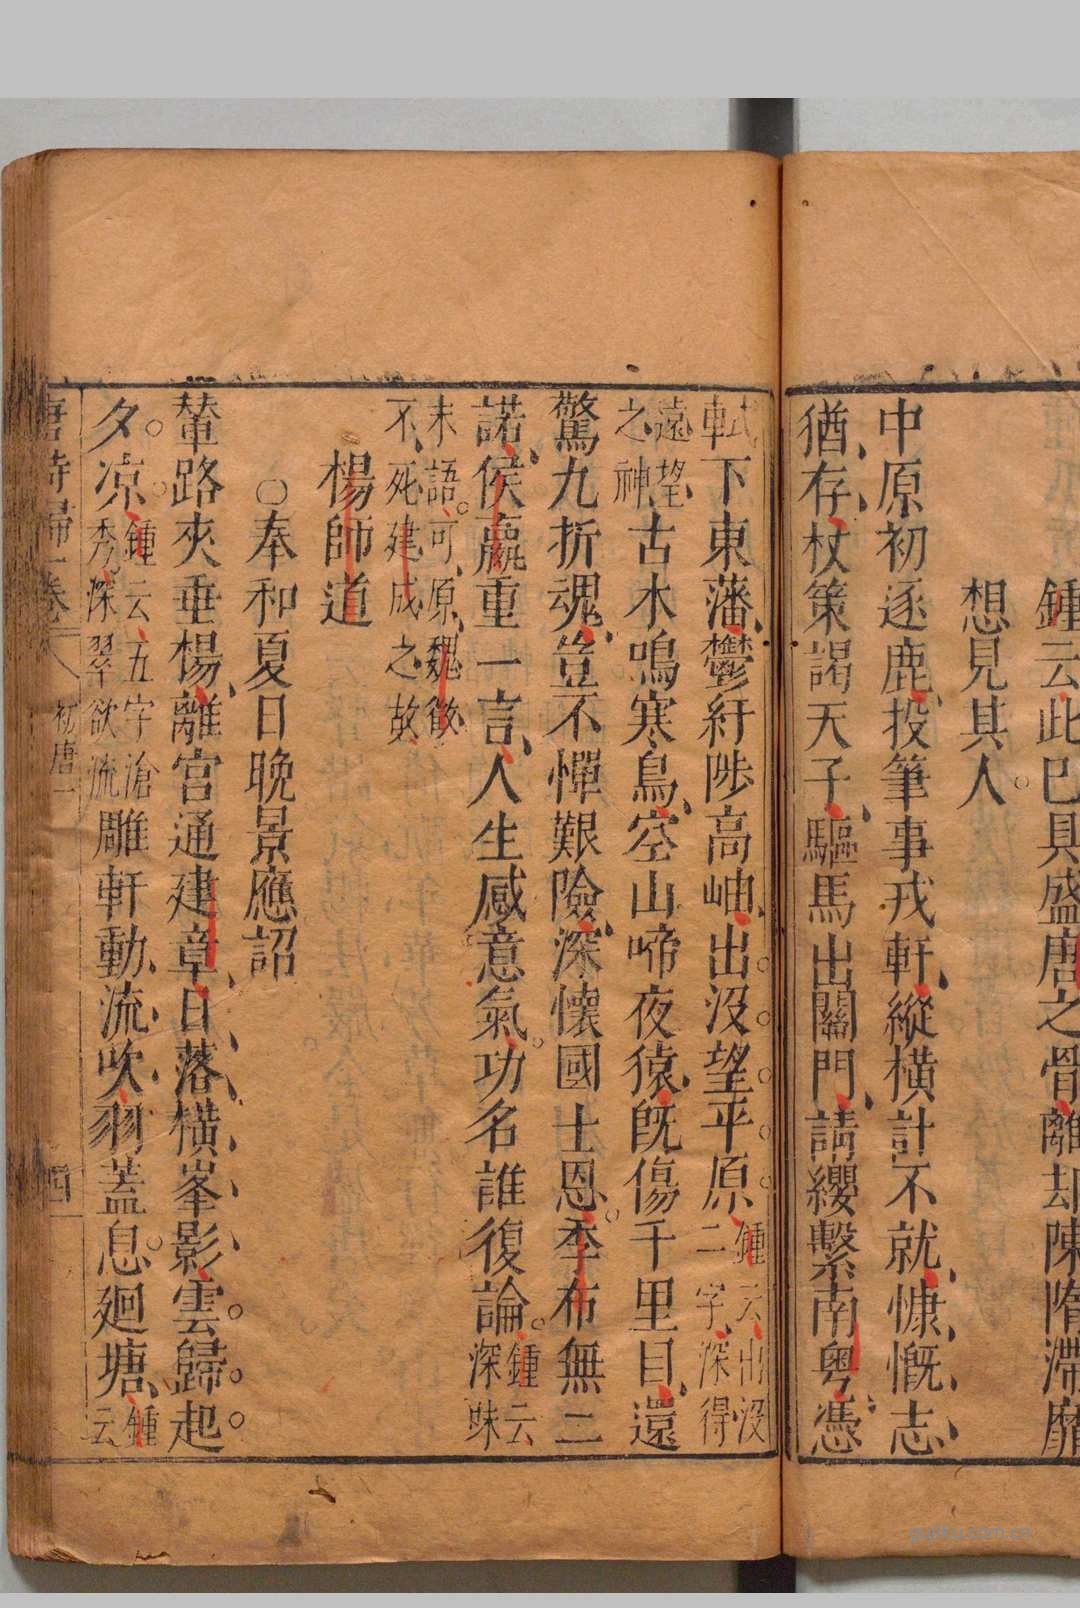 鍾云此巳具盛唐之骨離却陳隋滯靡
想見其人
中原初逐鹿投筆事戎軒縱橫計不就慷慨志
猶存杖策謁天子驅馬出關門請纓繫南粤憑
軾下東藩鬱紆陟高岫出没望平原
鍾云出没
二字深得
遠望
之神
古木鳴寒鳥空山啼夜猿旣傷千里目還
驚九折魂豈不憚艱險深懷國士恩季布無二
諾侯嬴重一言人生感意氣功名誰復論
鍾云
深味
末語可原魏徵
不死建成之故
楊師道
○奉和夏日晚景應詔
輦路夾垂楊離宮通建章日落橫峯影雲歸起
夕凉
鍾云五字滄
秀深翠欲流
雕軒動流吹羽蓋息廻塘
鍾
云
唐詩歸一卷
初唐一
四